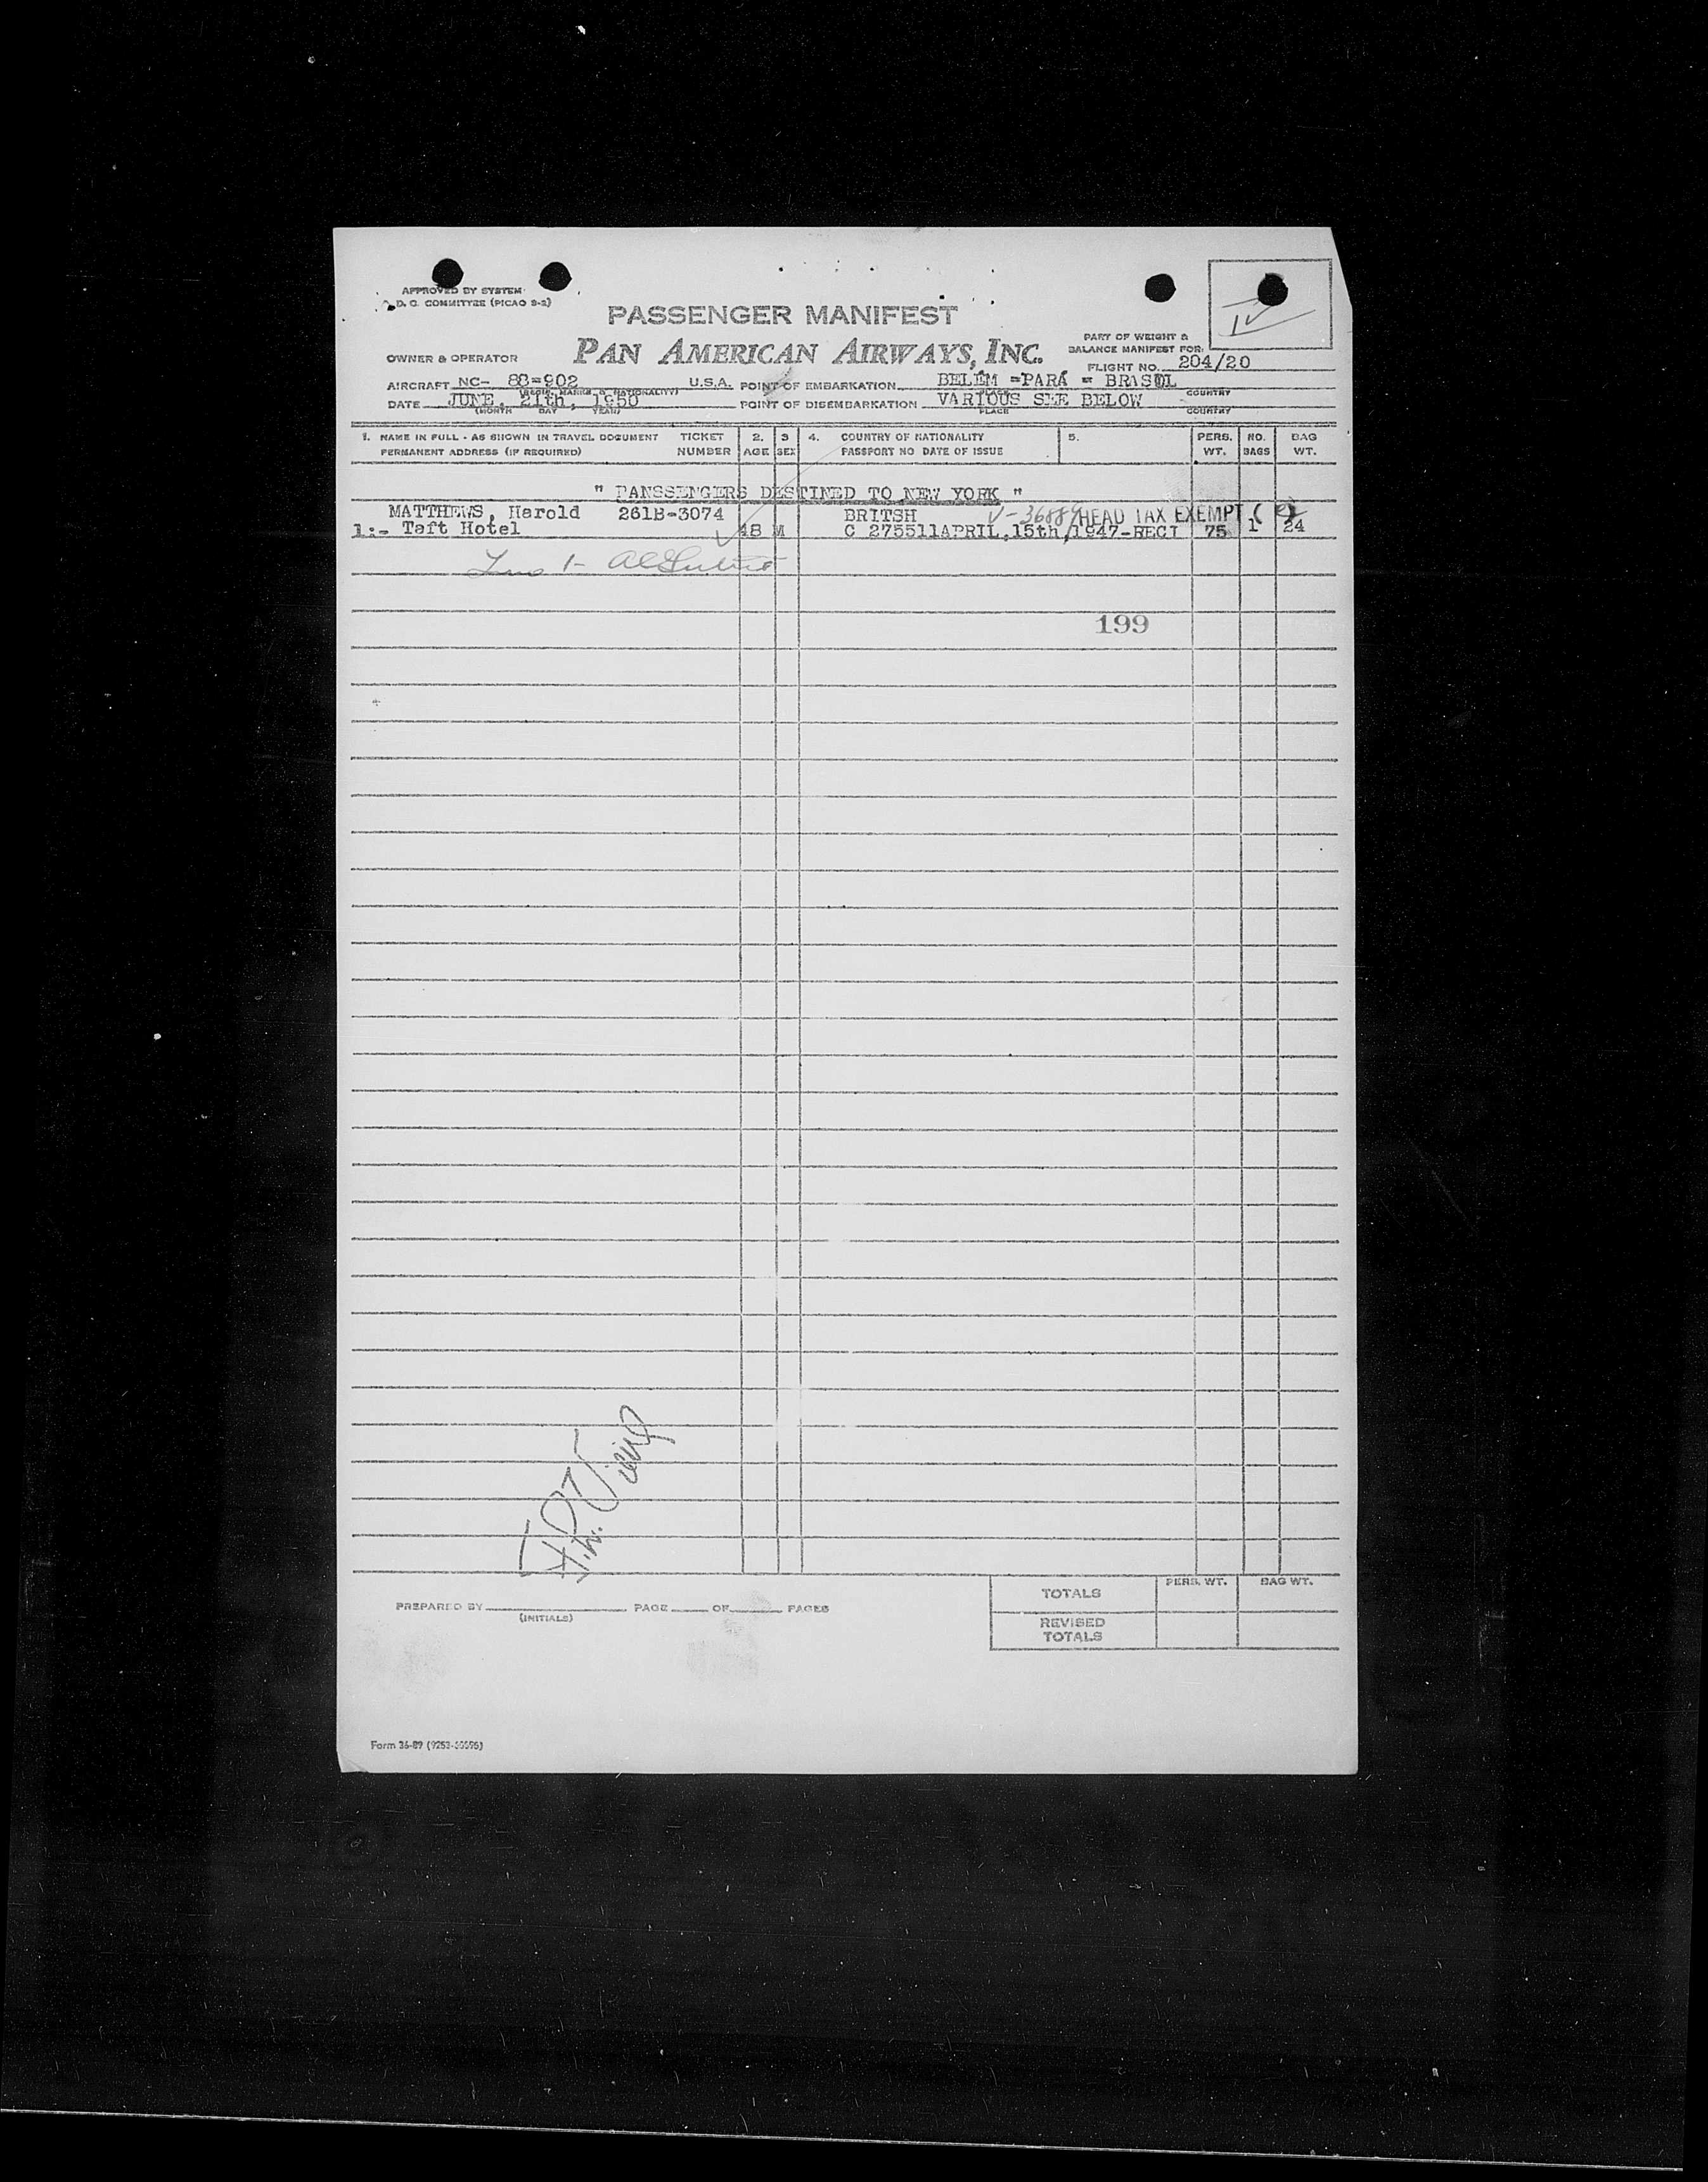 APPROVED BY SYSTEM
D. C. COMMITTEE (PICAO 9-2)
PASSENGER MANIFEST
PAN AMERICAN AIRWAYS, INC.
OWNER & OPERATOR
PART OF WEIGHT &
BALANCE MANIFEST FOR:
FLIGHT NO. 204/20
AIRCRAFT NC- 88-902 U.S.A. POINT OF EMBARKATION BELÉM -PARÁ - BRASIL
(REGIS. MARKS & NATIONALITY) PLACE COUNTRY
DATE JUNE, 21th, 1950 POINT OF DISEMBARKATION VARIOUS SEE BELOW
(MONTH DAY YEAR) PLACE COUNTRY
1. NAME IN FULL - AS SHOWN IN TRAVEL DOCUMENT TICKET 2. 3 4. COUNTRY OF NATIONALITY 5. PERS. NO. BAG
PERMANENT ADDRESS (IF REQUIRED) NUMBER AGE SEX PASSPORT NO DATE OF ISSUE WT. BAGS WT.
" PANSSENGERS DESTINED TO NEW YORK "
MATTHEWS, Harold 261B-3074 BRITSH HEAD TAX EXEMPT
1:- Taft Hotel 48 M C 275511APRIL,15th,1947-RECI 75 1 24
199
PREPARED BY PAGE OF PAGES
(INITIALS)
PERS. WT. BAG WT.
TOTALS
REVISED
TOTALS